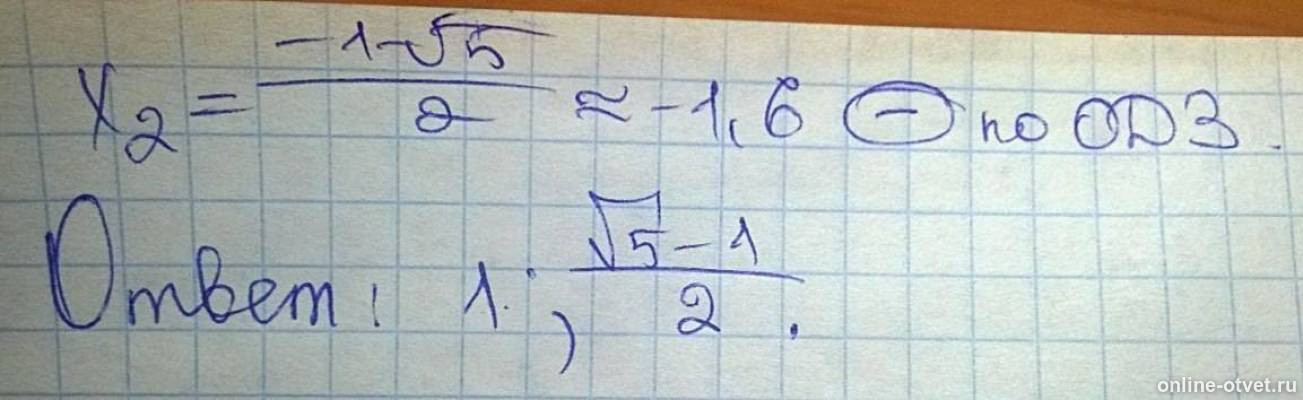 x₂ = (-1-√5)/2 ≈ -1,6 ⊖ по ОДЗ.
Ответ: 1; (√5-1)/2.
online-otvet.ru